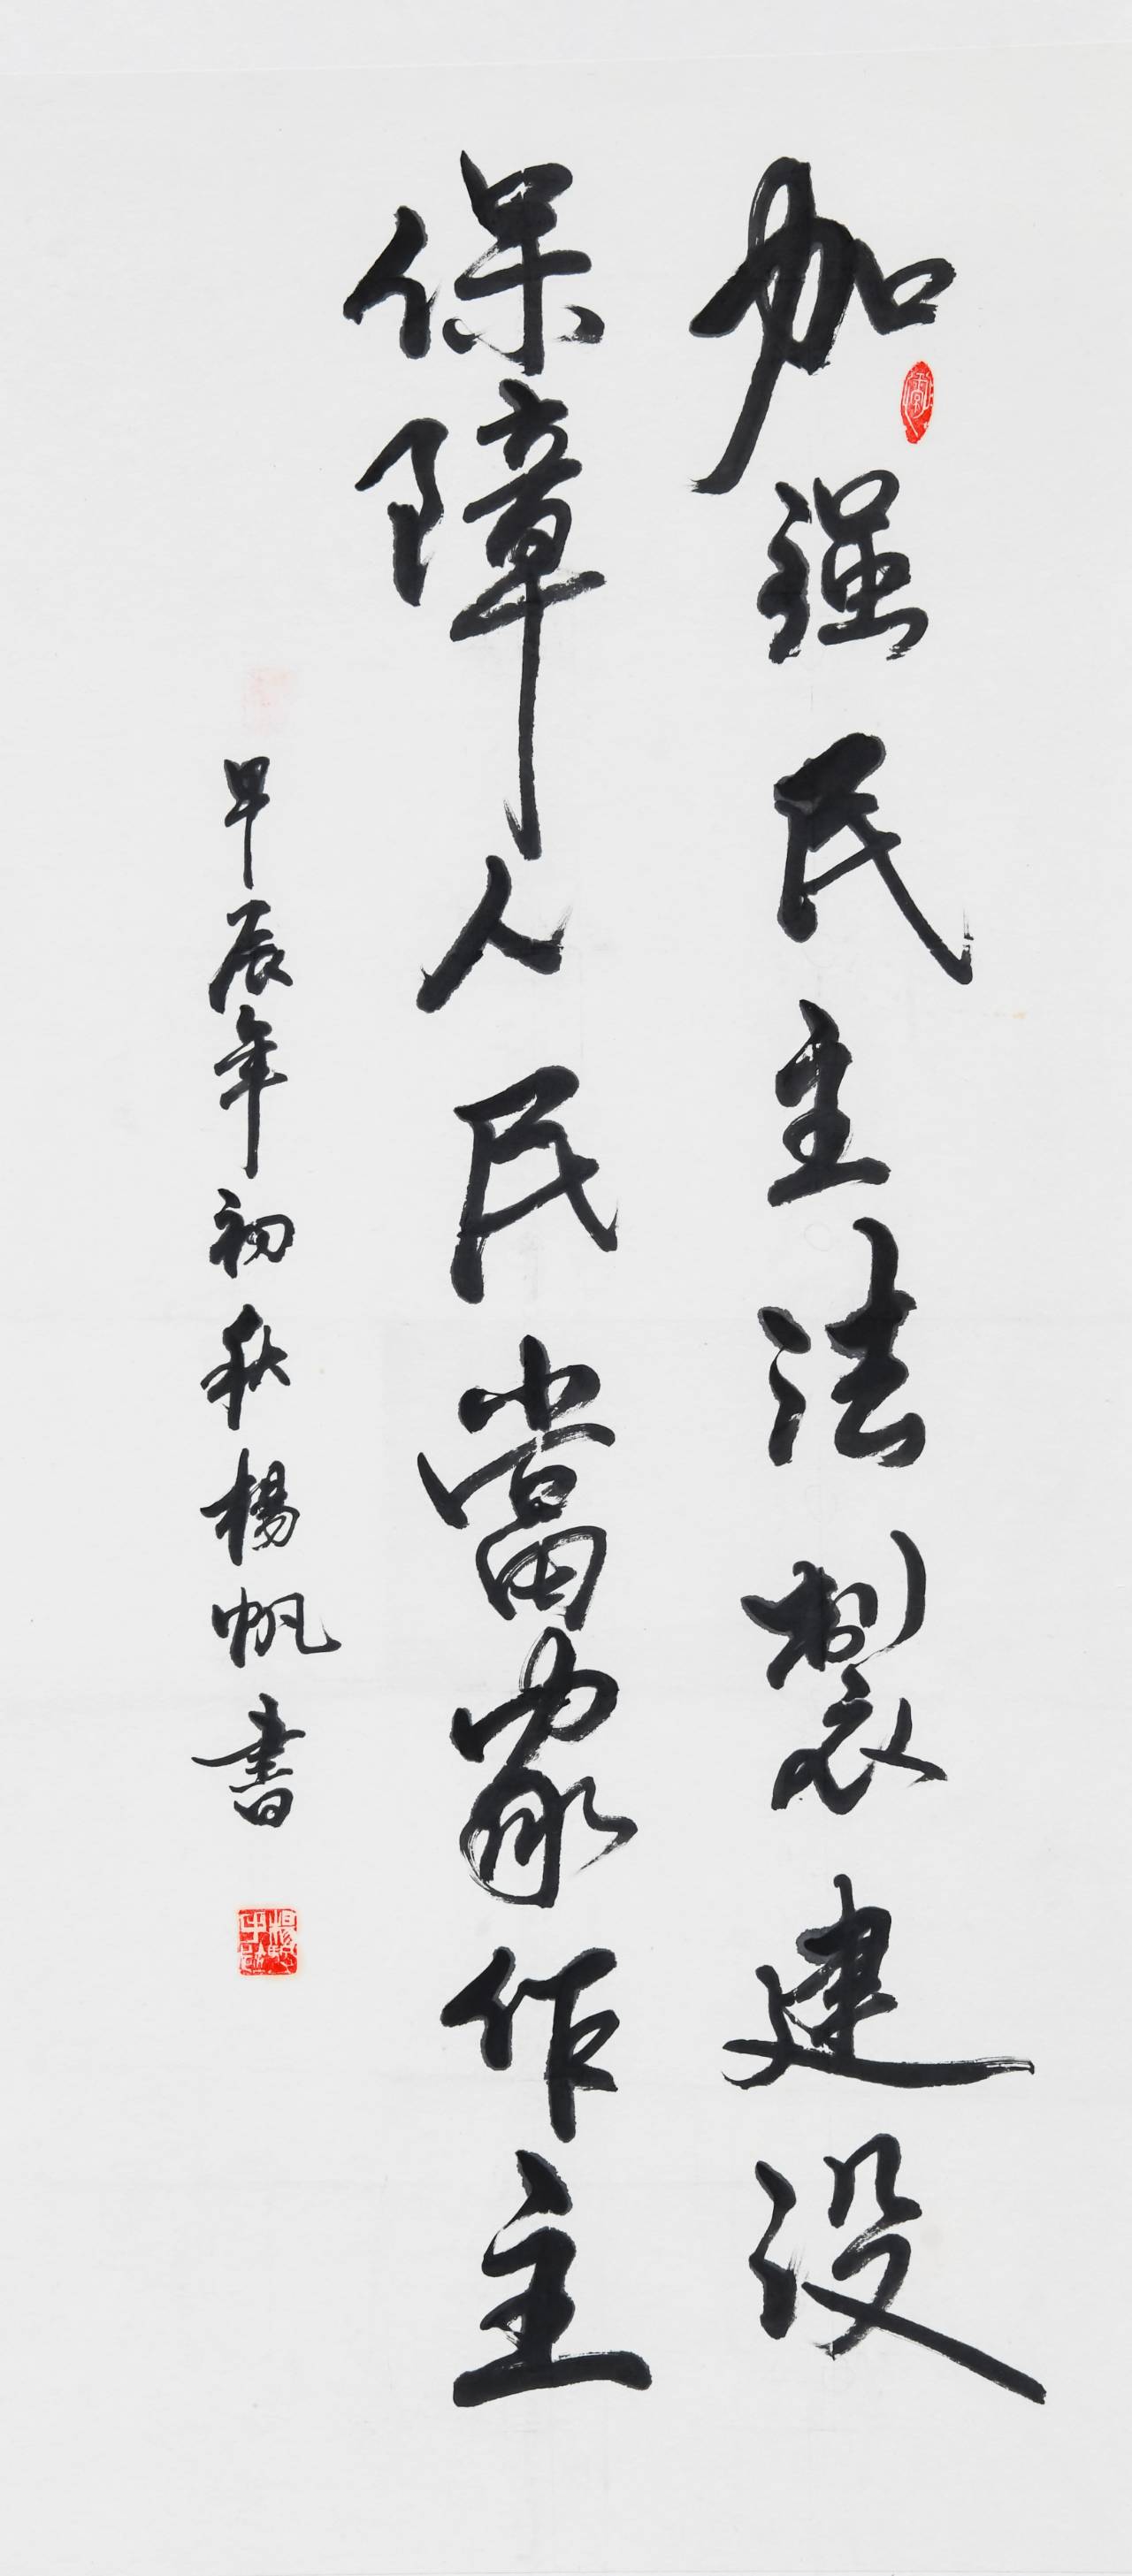 加强民主法製建设
保障人民當家作主
甲辰年初秋楊帆書